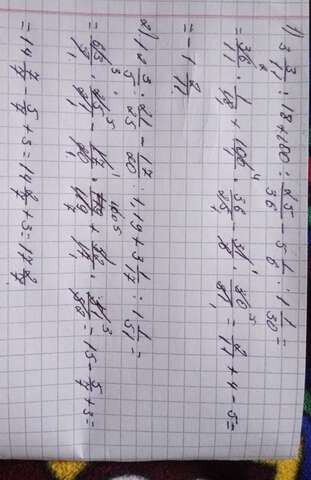 1) 3 3/11 : 18 + 100 : 25/36 - 5 1/6 : 1 1/30 =
= 36/11 · 1/18 + 100 · 36/25 - 31/6 · 30/31 = 2/11 + 4 - 5 =
= - 1 2/11
2) 12 3/5 : 21/25 - 17/20 : 1,19 + 3 1/17 : 1 1/51 =
= 63/5 · 25/21 - 17/20 · 100/119 + 52/17 · 51/52 = 15 - 5/7 + 3 =
= 14 7/7 - 5/7 + 3 = 14 2/7 + 3 = 17 2/7